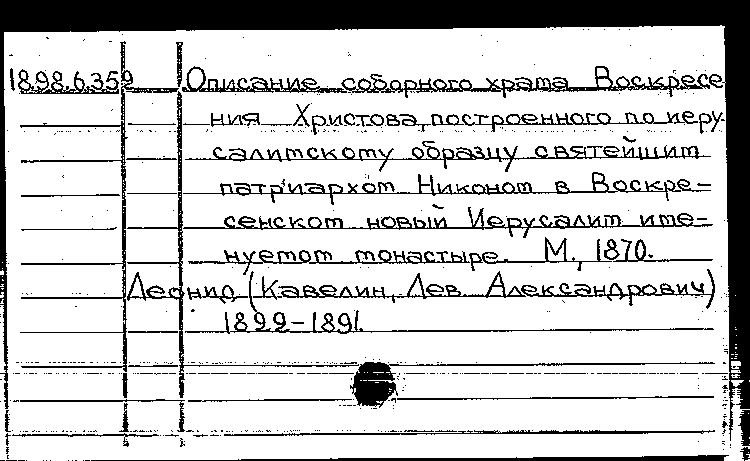 1898.6.359 Описание соборного храма Воскресе
ния Христова, построенного по иеру
салимскому образцу святейшим
патриархом Никоном в Воскре-
сенском новый Иерусалим име-
нуемом монастыре. М., 1870.
Леонид (Кавелин, Лев Александрович)
1822-1891.